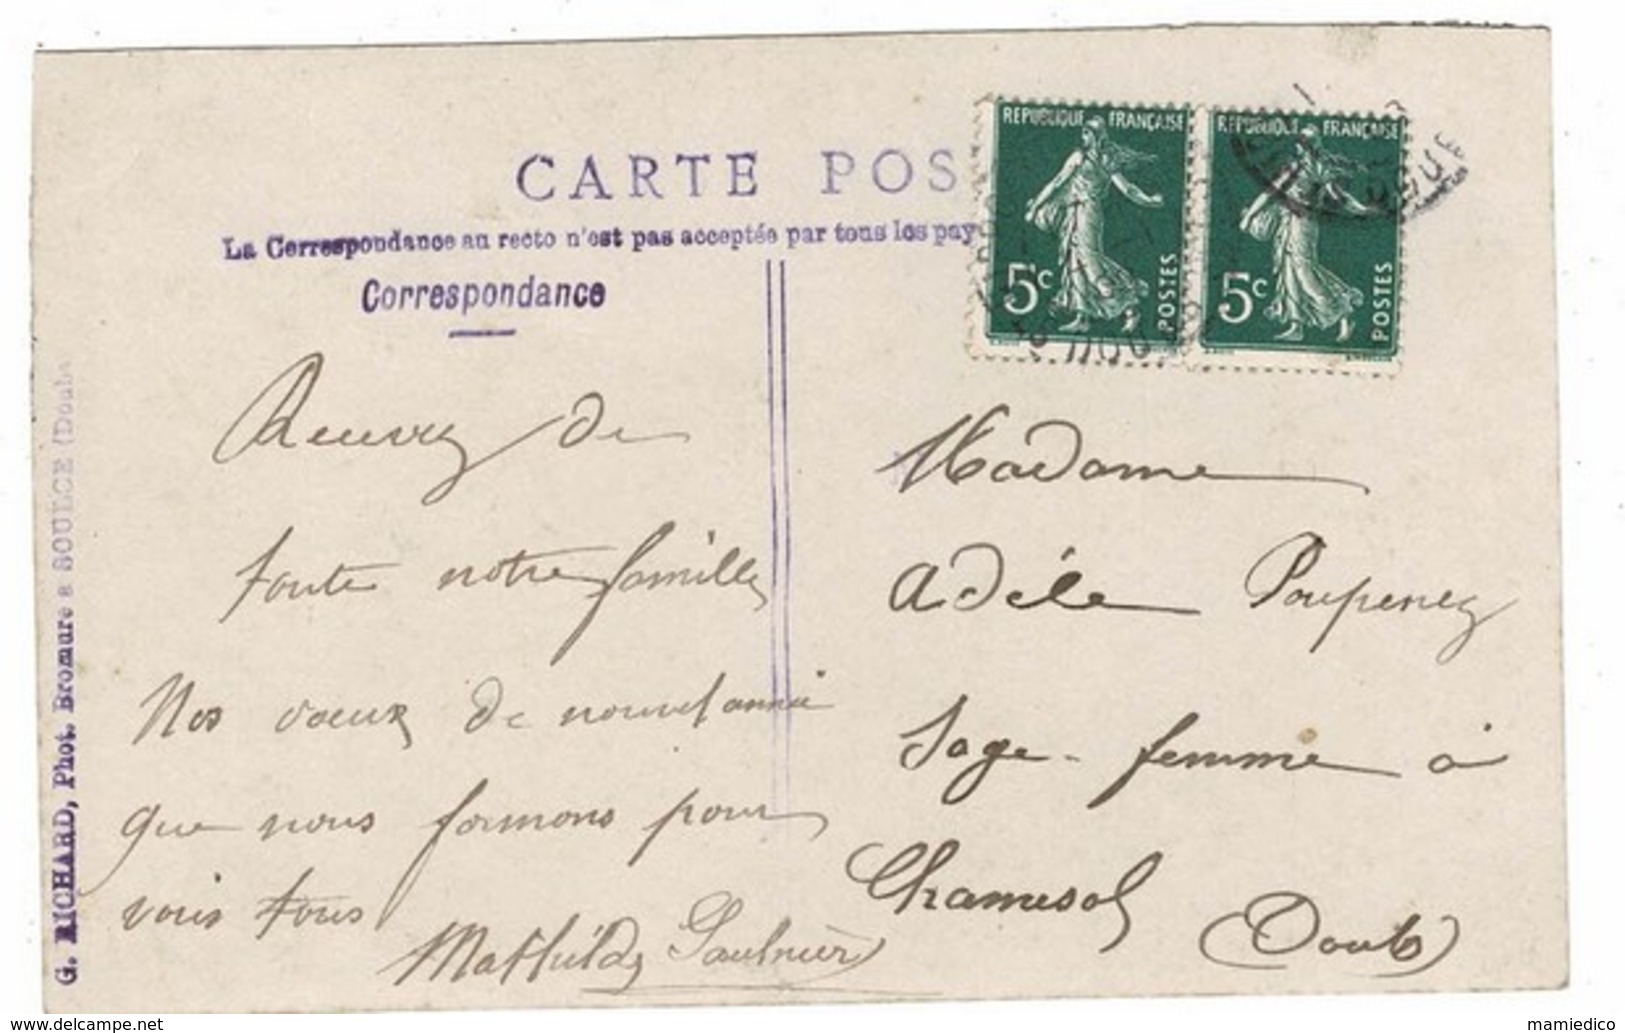 CARTE POS
La Correspondance au recto n'est pas acceptée par tous les pay
Correspondance
REPUBLIQUE FRANÇAISE
5c
POSTES
REPUBLIQUE FRANÇAISE
5c
POSTES
G. RICHARD, Phot. Bromure a SOULCE (Doubs
Reusvez de
toute notre famille
Nos vœux de nouvel année
que nous formons pour
vous tous
Mathilde Saulnier
Madame
Adèle Poupeney
Sage-femme à
Chamesol
(Doubs)
mamiedico
www.delcampe.net